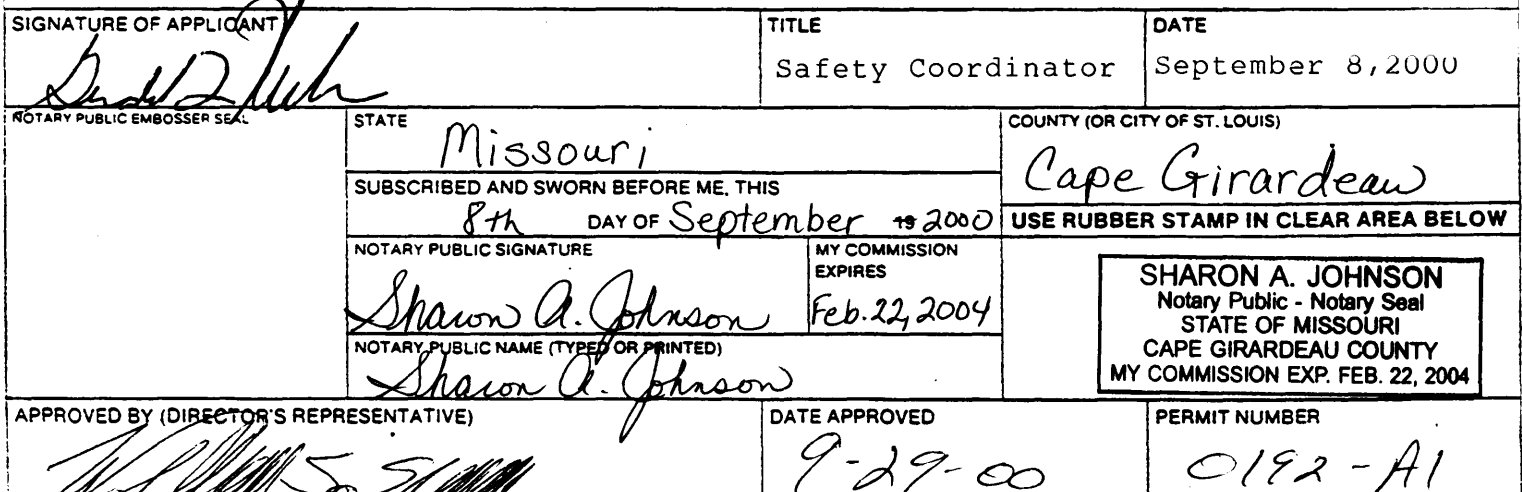 SIGNATURE OF APPLICANT
TITLE
DATE
Safety Coordinator
September 8,2000
NOTARY PUBLIC EMBOSSER SEAL
STATE
Missouri
COUNTY (OR CITY OF ST. LOUIS)
Cape Girardeau
SUBSCRIBED AND SWORN BEFORE ME, THIS
8th DAY OF September 19 2000
USE RUBBER STAMP IN CLEAR AREA BELOW
NOTARY PUBLIC SIGNATURE
Sharon A. Johnson
MY COMMISSION
EXPIRES
Feb. 22, 2004
NOTARY PUBLIC NAME (TYPED OR PRINTED)
Sharon A. Johnson
SHARON A. JOHNSON
Notary Public - Notary Seal
STATE OF MISSOURI
CAPE GIRARDEAU COUNTY
MY COMMISSION EXP. FEB. 22, 2004
APPROVED BY (DIRECTOR'S REPRESENTATIVE)
DATE APPROVED
9-29-00
PERMIT NUMBER
0192-A1